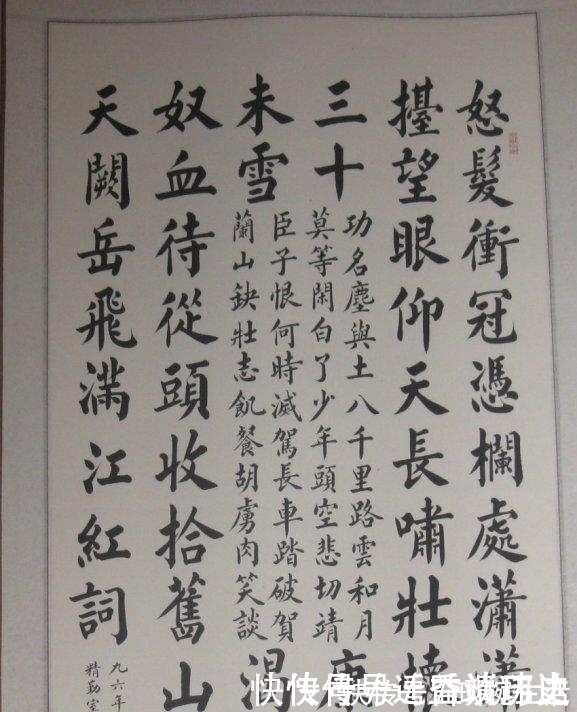 怒髮衝冠憑欄處瀟瀟
擡望眼仰天長嘯壯懷
三十
功名塵與土八千里路雲和月
莫等閑白了少年頭空悲切靖
康
未雪
臣子恨何時滅駕長車踏破賀
蘭山缺壯志飢餐胡虜肉笑談
渴
奴血待從頭收拾舊山
天闕岳飛滿江紅詞
九六年
精勤室